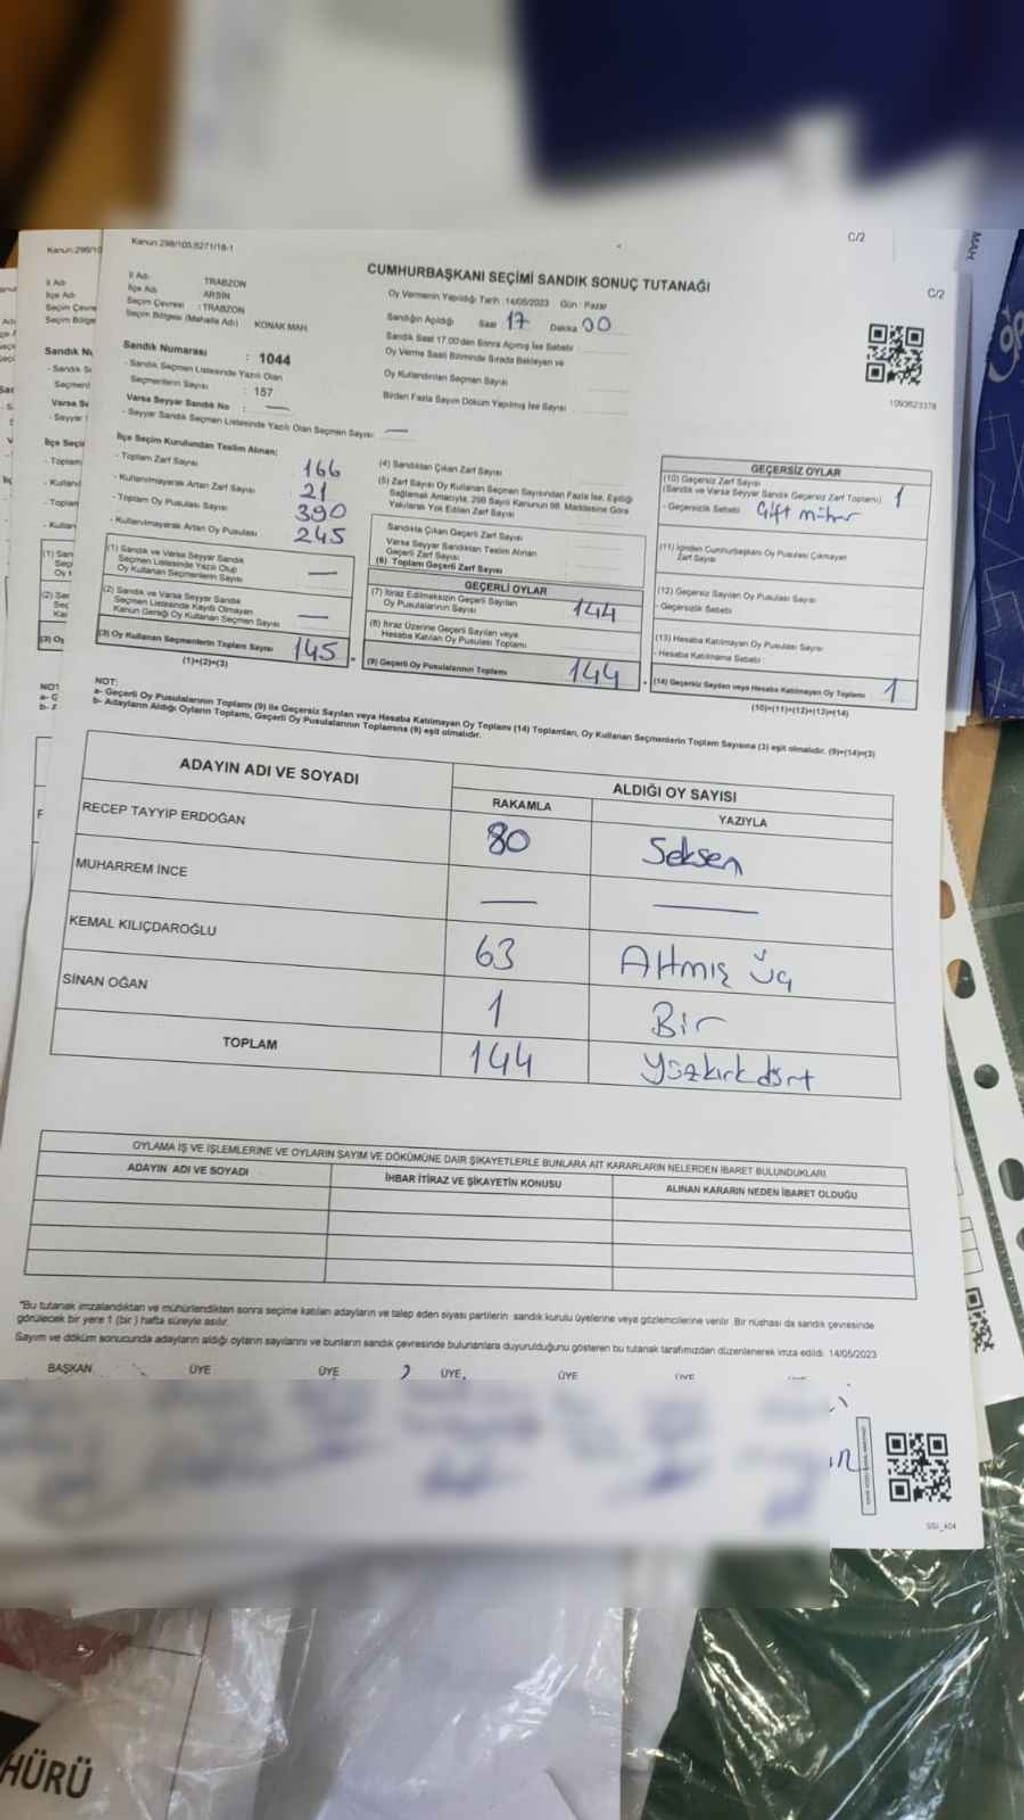 Kanun:298/105,6271/18-1
C/2
CUMHURBAŞKANI SEÇİMİ SANDIK SONUÇ TUTANAĞI
İl Adı : TRABZON
İlçe Adı : ARSİN
Seçim Çevresi : TRABZON
Seçim Bölgesi (Mahalle Adı) KONAK MAH
Oy Vermenin Yapıldığı Tarih : 14/05/2023 Gün : Pazar
Sandığın Açıldığı Saat 17 Dakika 00
Sandık Saat 17.00'den Sonra Açımış İse Sebebi
Oy Verme Saati Bitiminde Sırada Bekleyen ve
Oy Kullandırılan Seçmen Sayısı
Birden Fazla Sayım Döküm Yapılmış İse Sayısı
Sandık Numarası : 1044
- Sandık Seçmen Listesinde Yazılı Olan
Seçmenlerin Sayısı : 157
Varsa Seyyar Sandık No : —
- Seyyar Sandık Seçmen Listesinde Yazılı Olan Seçmen Sayısı —
İlçe Seçim Kurulundan Teslim Alınan;
- Toplam Zarf Sayısı 166
- Kullanılmayarak Artan Zarf Sayısı 21
- Toplam Oy Pusulası Sayısı 390
- Kullanılmayarak Artan Oy Pusulası 245
(1) Sandık ve Varsa Seyyar Sandık
Seçmen Listesinde Yazılı Olup
Oy Kullanan Seçmenlerin Sayısı —
(2) Sandık ve Varsa Seyyar Sandık
Seçmen Listesinde Kayıtlı Olmayan
Kanun Gereği Oy Kullanan Seçmen Sayısı —
(3) Oy Kullanan Seçmenlerin Toplam Sayısı 145
(1)+(2)=(3)
(4) Sandıktan Çıkan Zarf Sayısı
(5) Zarf Sayısı Oy Kullanan Seçmen Sayısından Fazla İse, Eşitliği
Sağlamak Amacıyla, 298 Sayılı Kanunun 98. Maddesine Göre
Yakılarak Yok Edilen Zarf Sayısı
Sandıkta Çıkan Geçerli Zarf Sayısı
Varsa Seyyar Sandıktan Teslim Alınan
Geçerli Zarf Sayısı
(6) Toplam Geçerli Zarf Sayısı
GEÇERLİ OYLAR
(7) İtiraz Edilmeksizin Geçerli Sayılan
Oy Pusulalarının Sayısı 144
(8) İtiraz Üzerine Geçerli Sayılan veya
Hesaba Katılan Oy Pusulası Toplamı
(9) Geçerli Oy Pusulalarının Toplamı 144
1093623378
GEÇERSİZ OYLAR
(10) Geçersiz Zarf Sayısı
(Sandık ve Varsa Seyyar Sandık Geçersiz Zarf Toplamı) 1
- Geçersizlik Sebebi Çift mühür
(11) İçinden Cumhurbaşkanı Oy Pusulası Çıkmayan
Zarf Sayısı
(12) Geçersiz Sayılan Oy Pusulası Sayısı
- Geçersizlik Sebebi
(13) Hesaba Katılmayan Oy Pusulası Sayısı
- Hesaba Katılmama Sebebi :
(14) Geçersiz Sayılan veya Hesaba Katılmayan Oy Toplamı 1
(10)+(11)+(12)+(13)=(14)
NOT:
a- Geçerli Oy Pusulalarının Toplamı (9) ile Geçersiz Sayılan veya Hesaba Katılmayan Oy Toplamı (14) Toplamları, Oy Kullanan Seçmenlerin Toplam Sayısına (3) eşit olmalıdır. (9)+(14)=(3)
b- Adayların Aldığı Oyların Toplamı, Geçerli Oy Pusulalarının Toplamına (9) eşit olmalıdır.
ADAYIN ADI VE SOYADI ALDIĞI OY SAYISI
RAKAMLA YAZIYLA
RECEP TAYYİP ERDOĞAN 80 Seksen
MUHARREM İNCE — —
KEMAL KILIÇDAROĞLU 63 Altmış üç
SİNAN OĞAN 1 Bir
TOPLAM 144 Yüzkırkdört
OYLAMA İŞ VE İŞLEMLERİNE VE OYLARIN SAYIM VE DÖKÜMÜNE DAİR ŞİKAYETLERLE BUNLARA AİT KARARLARIN NELERDEN İBARET BULUNDUKLARI
ADAYIN ADI VE SOYADI İHBAR İTİRAZ VE ŞİKAYETİN KONUSU ALINAN KARARIN NEDEN İBARET OLDUĞU
"Bu tutanak imzalandıktan ve mühürlendikten sonra seçime katılan adayların ve talep eden siyasi partilerin sandık kurulu üyelerine veya gözlemcilerine verilir. Bir nüshası da sandık çevresinde
görülecek bir yere 1 (bir) hafta süreyle asılır.
Sayım ve döküm sonucunda adayların aldığı oyların sayılarını ve bunların sandık çevresinde bulunanlara duyurulduğunu gösteren bu tutanak tarafımızdan düzenlenerek imza edildi. 14/05/2023
BAŞKAN ÜYE ÜYE ÜYE ÜYE
C/2
MAH
HÜRÜ